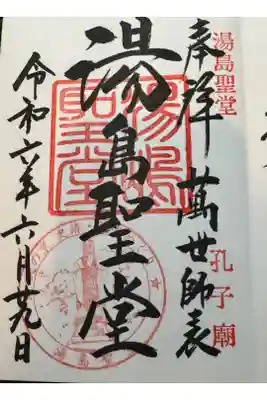 湯島聖堂
孔子廟
奉拝 萬世師表
湯島聖堂
湯島聖堂
令和六年六月廿九日